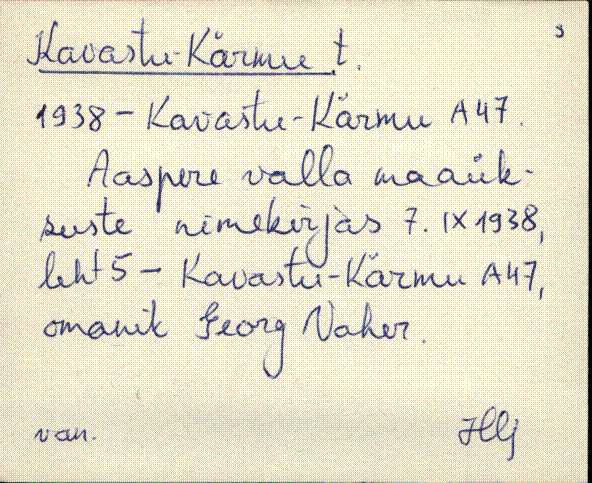 3
Kavastu-Kärmu t.
1938 - Kavastu-Kärmu A47.
Aaspere valla maaük-
suste nimekirjas 7. IX 1938,
leht 5 - Kavastu-Kärmu A47,
omanik Georg Vaher.
van. HLj